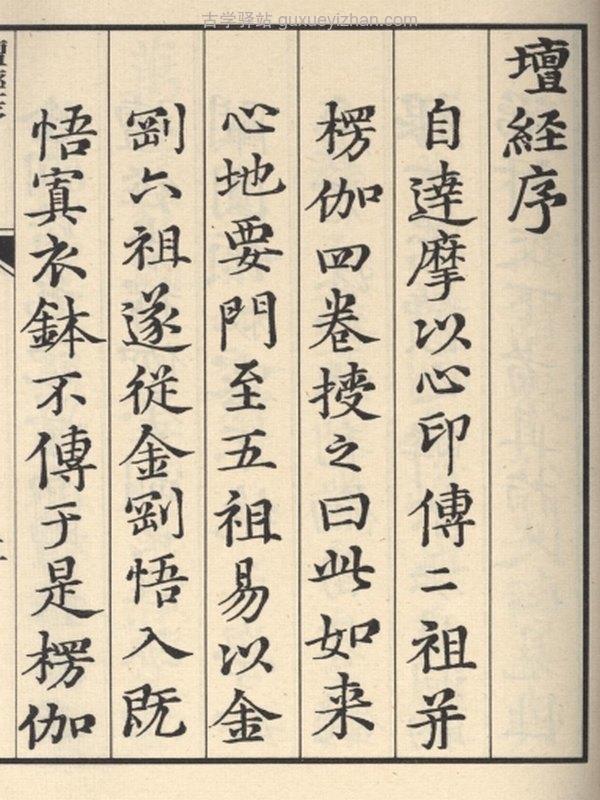 古学驿站 guxueyizhan.com
壇經序
自達摩以心印傳二祖并
楞伽四卷授之曰此如来
心地要門至五祖易以金
剛六祖遂從金剛悟入既
悟寘衣鉢不傳于是楞伽